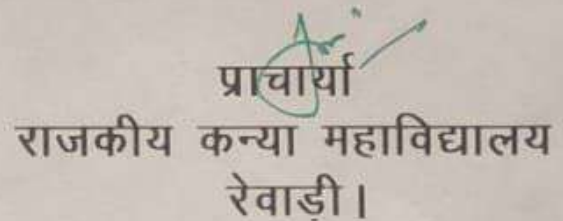 प्राचार्या
राजकीय कन्या महाविद्यालय
रेवाड़ी।